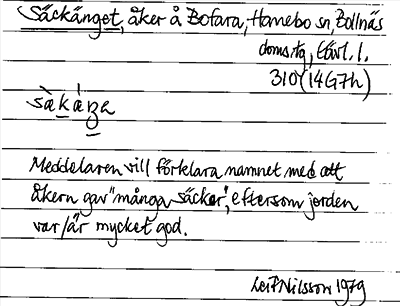 Säckänget, åker å Bofara, Hanebo sn, Bollnäs
doms.tg, Gävl. l.
310 (14G7h)
sàkáŋə
Meddelaren vill förklara namnet med att
åkern gav "många säckar", eftersom jorden
var/är mycket god.
Leif Nilsson 1979